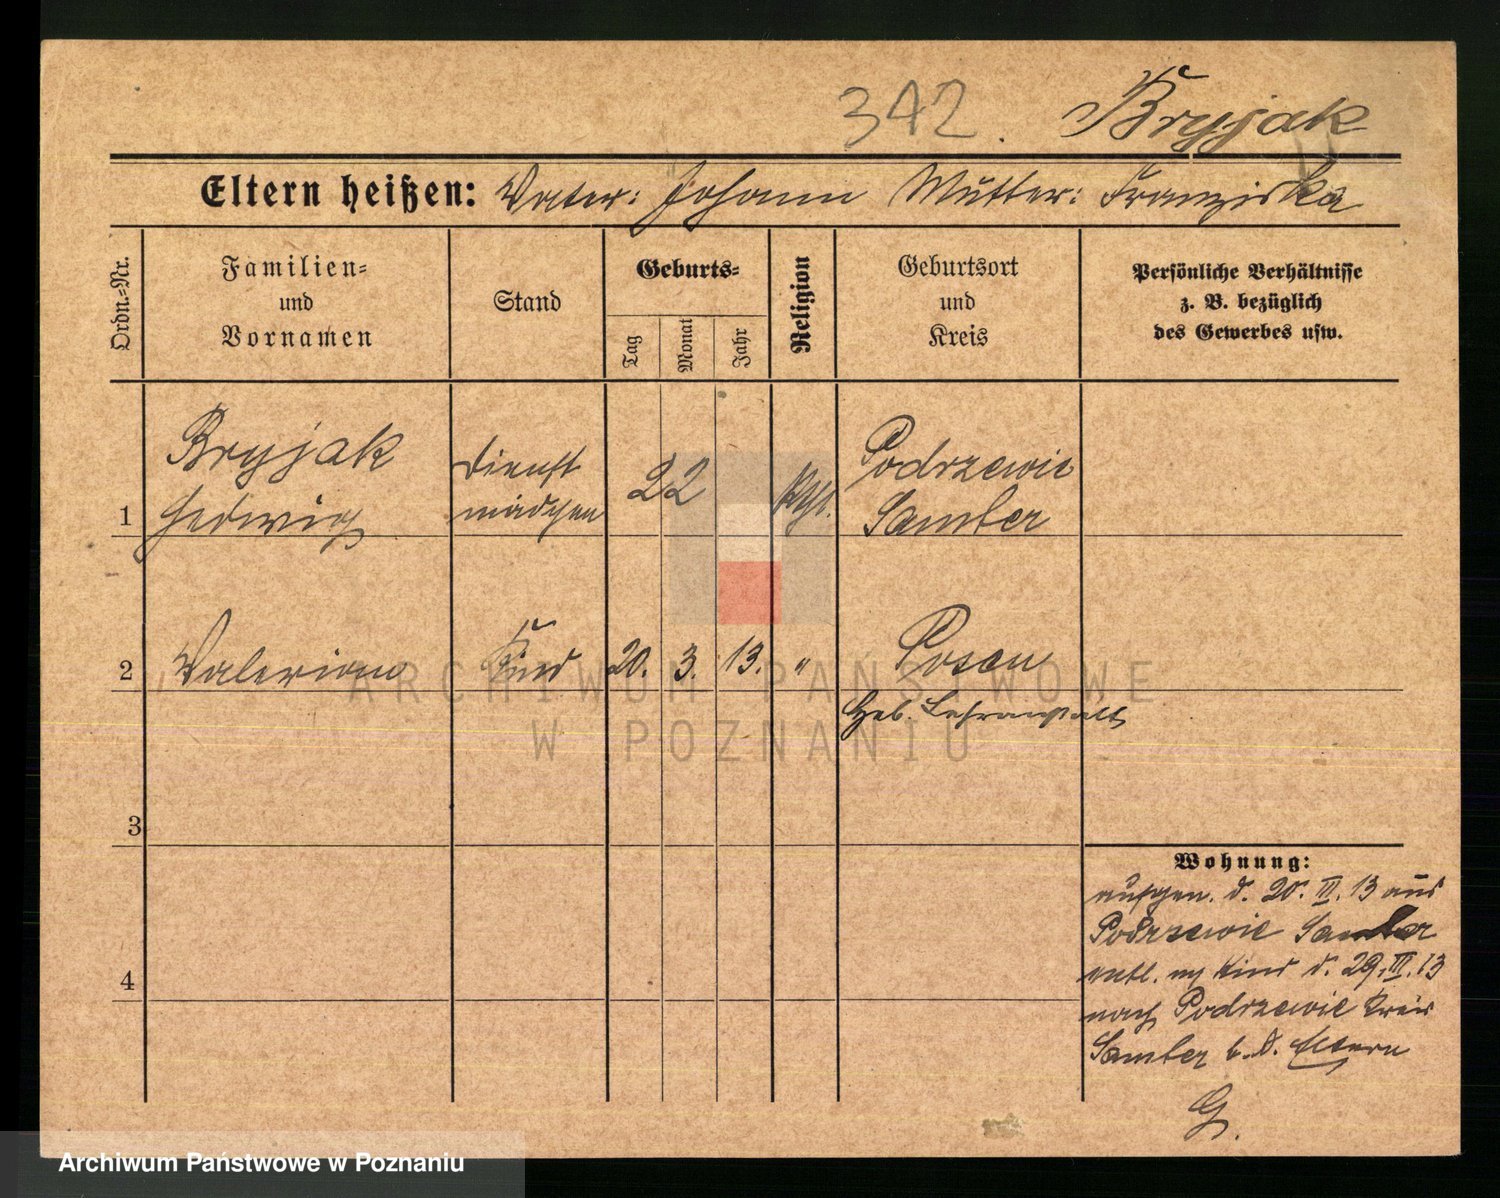 342. Bryjak
Eltern heißen: Vater: Johann Mutter: Franziska
Ordn.=Nr.
Familien=
und
Vornamen
Stand
Geburts=
Tag
Monat
Jahr
Religion
Geburtsort
und
Kreis
Persönliche Verhältnisse
z. B. bezüglich
des Gewerbes usw.
1
Bryjak
Hedwig
Dienst
mädchen
22
kth.
Podrzewie
Samter
2
Valerian
Kind
20. 3. 13.
"
Posen
Geb. Lehranstalt
3
4
Wohnung:
aufgen. d. 20. III. 13 aus
Podrzewie Samter
entl. m Kind d. 29. III. 13
nach Podrzewie Kreis
Samter b. d. Eltern
G.
ARCHIWUM PAŃSTWOWE
W POZNANIU
Archiwum Państwowe w Poznaniu